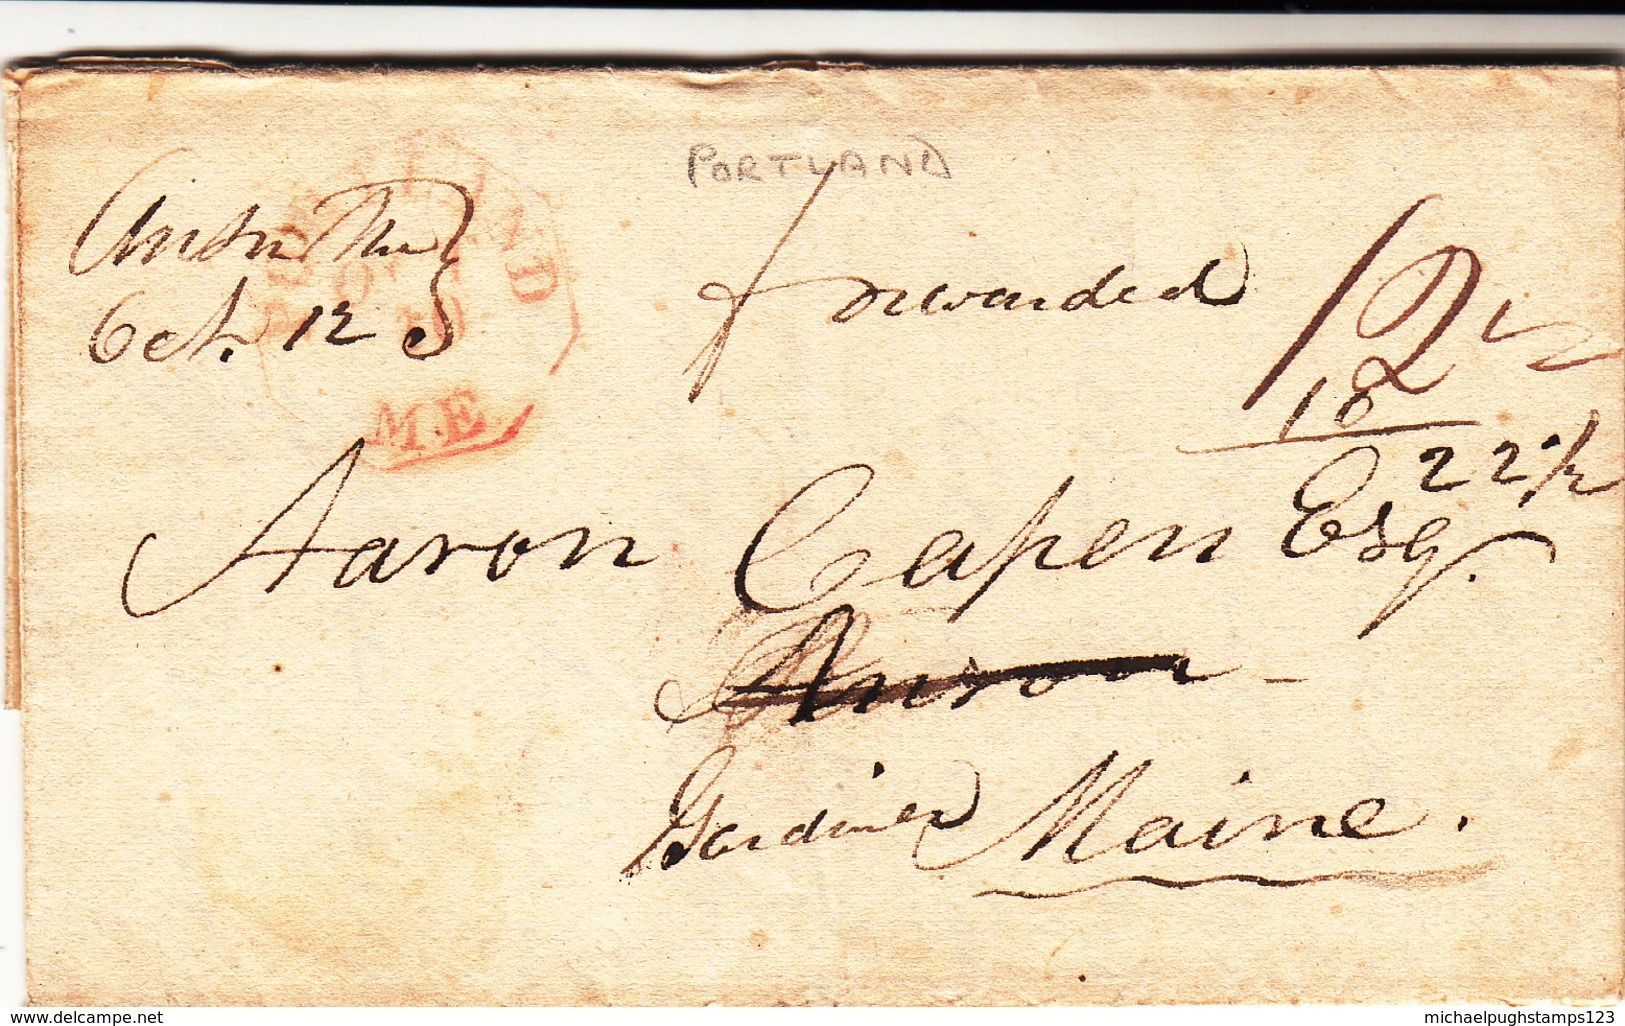 PORTLAND
PORTLAND
OCT
10
ME.
Anson Me
Oct. 12
forwarded
12½
10
22½
Aaron Capen Esq.
Anson
Gardiner Maine.
www.delcampe.net
michaelpughstamps123